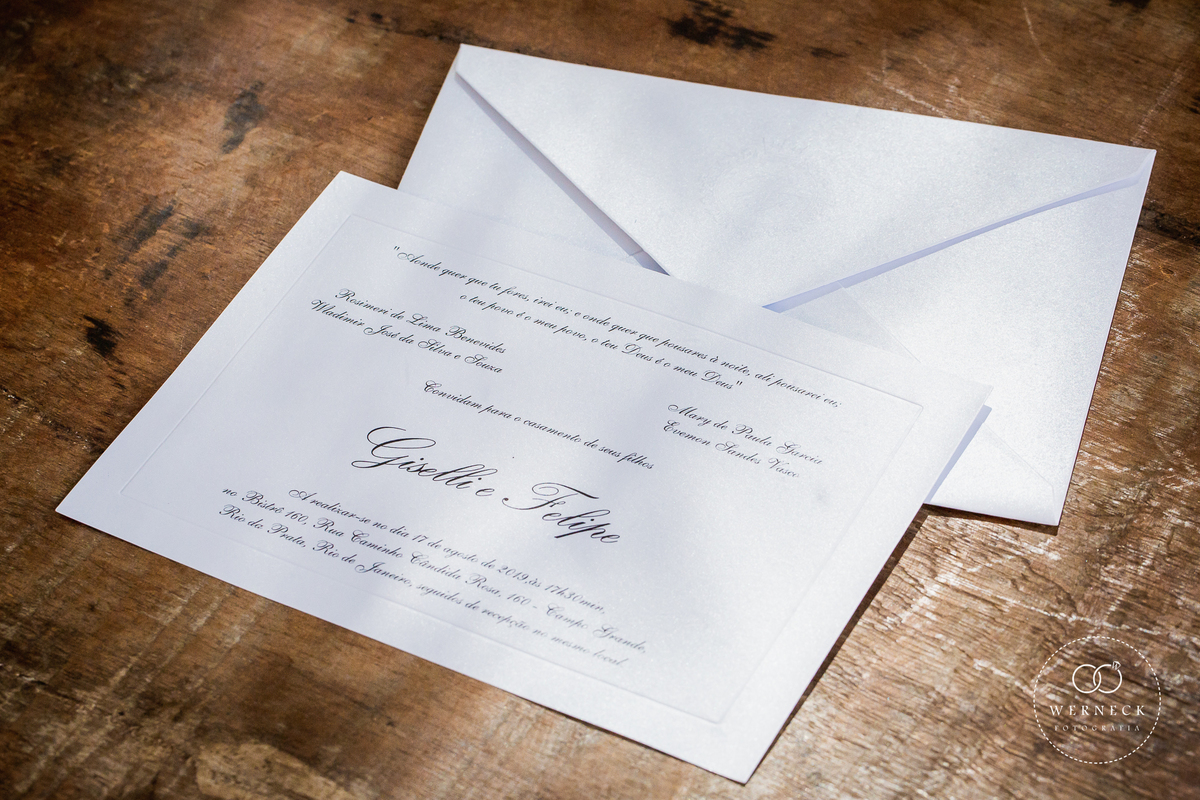 "Aonde quer que tu fores, irei eu; e onde quer que pousares à noite, ali pousarei eu;
o teu povo é o meu povo, o teu Deus é o meu Deus"
Rosimeri de Lima Benevides
Wladimir José da Silva e Souza
Mary de Paula Garcia
Evemon Sandes Vasco
Convidam para o casamento de seus filhos
Giselli e Felipe
A realizar-se no dia 17 de agosto de 2019, às 17h30min,
no Bistrô 160, Rua Caminho Cândida Rosa, 160 - Campo Grande,
Rio da Prata, Rio de Janeiro, seguidos de recepção no mesmo local.
WERNECK
FOTOGRAFIA